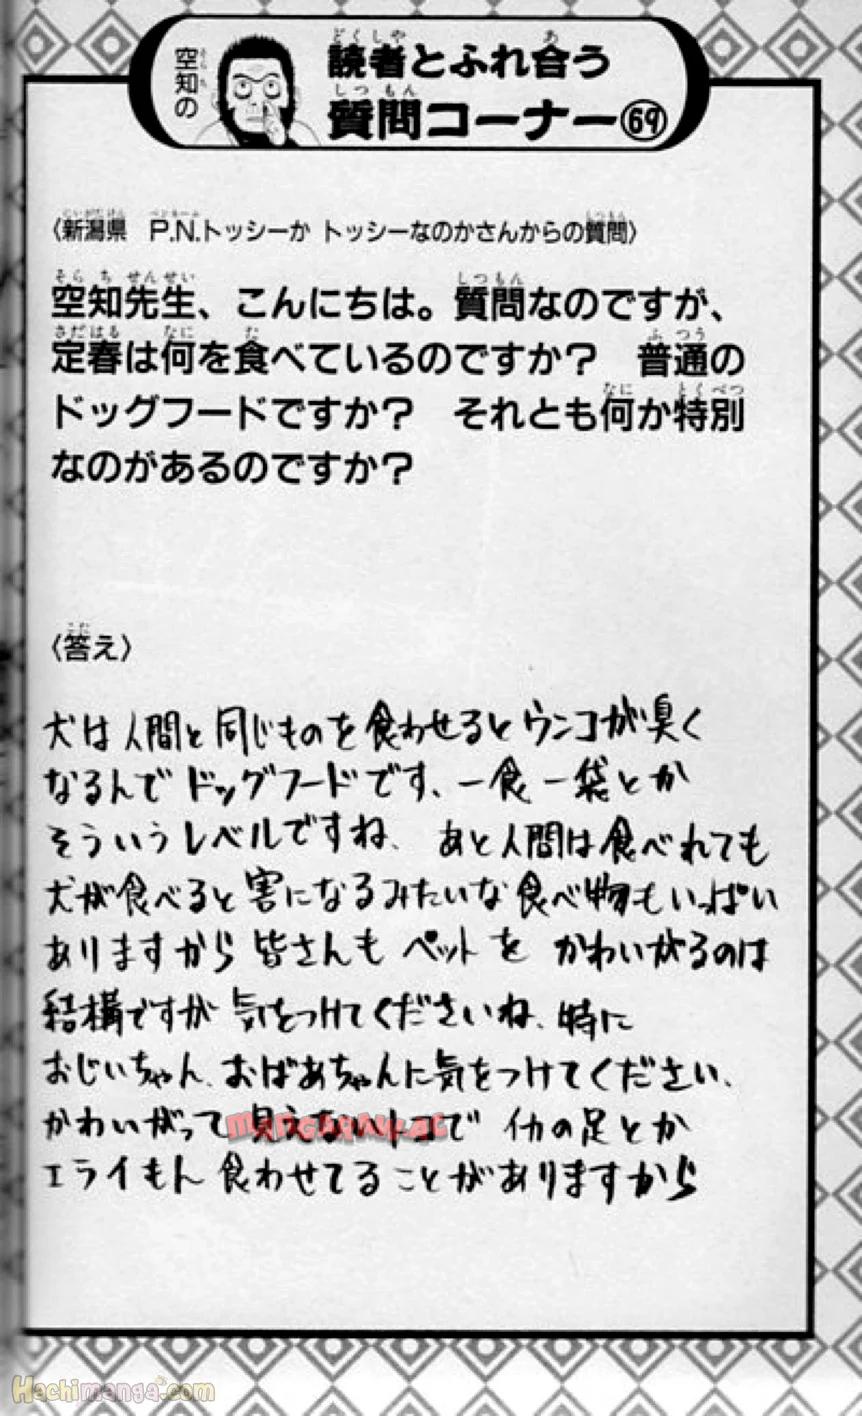 空知の
読者とふれ合う
質問コーナー69
〈新潟県　P.N.トッシーか トッシーなのかさんからの質問〉
空知先生、こんにちは。質問なのですが、
定春は何を食べているのですか？　普通の
ドッグフードですか？　それとも何か特別
なのがあるのですか？
〈答え〉
犬は人間と同じものを食わせるとウンコが臭く
なるんでドッグフードです、一食一袋とか
そういうレベルですね、あと人間は食べれても
犬が食べると害になるみたいな食べ物もいっぱい
ありますから皆さんもペットをかわいがるのは
結構ですが気をつけてくださいね、特に
おじいちゃん、おばあちゃんに気をつけてください、
かわいがって見えないトコでイカの足とか
エライもん食わせてることがありますから
mangaraw.ac
Hachimanga.com